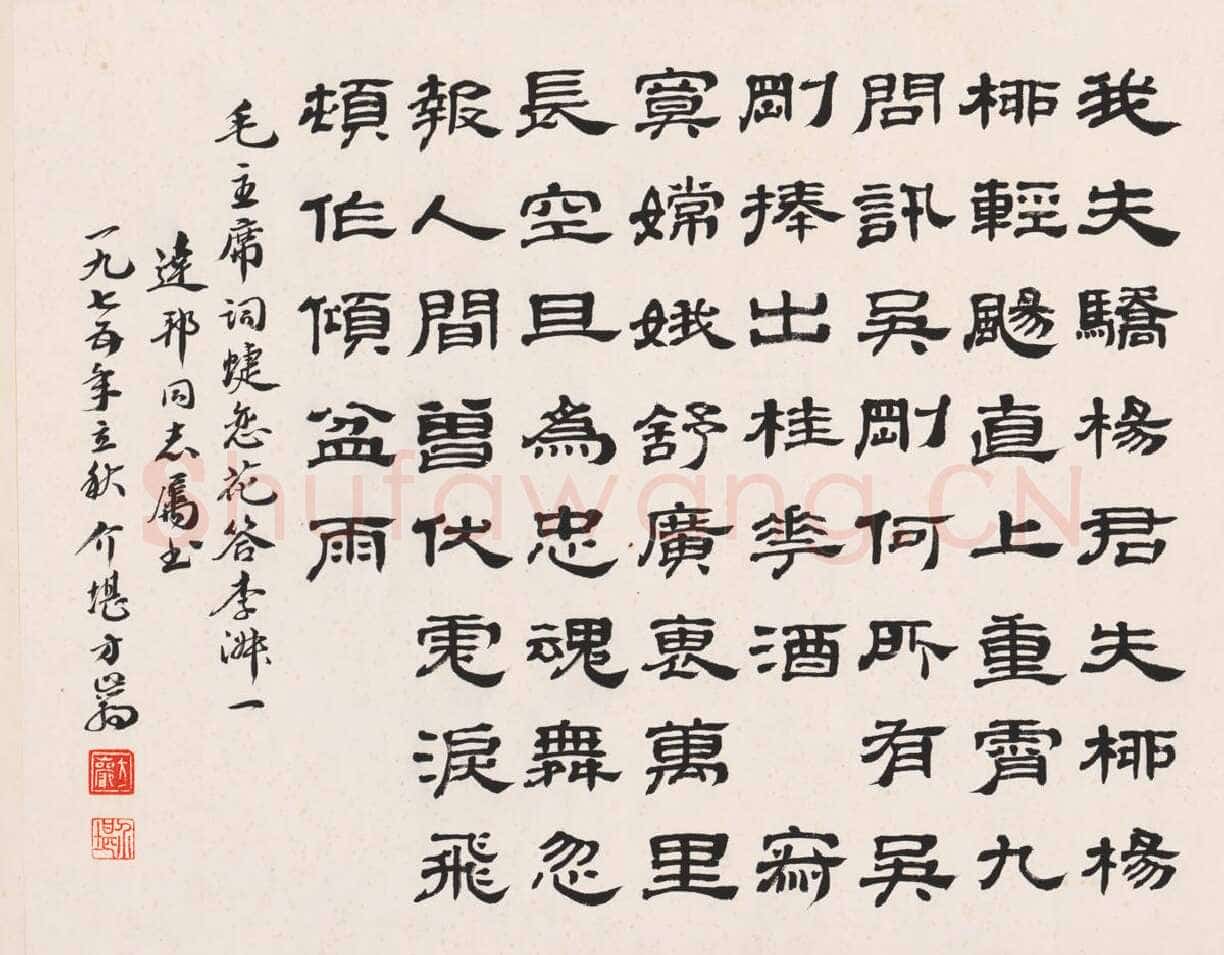 我失驕楊君失柳楊
柳輕颺直上重霄九
問訊吳剛何所有吳
剛捧出桂華酒 寂
寞嫦娥舒廣袖萬里
長空且為忠魂舞忽
報人間曾伏虎淚飛
頓作傾盆雨
毛主席詞蝶恋花答李淑一
達邦同志屬書
一九七五年立秋 介堪方巖
方巖
介堪
Shufawang.CN